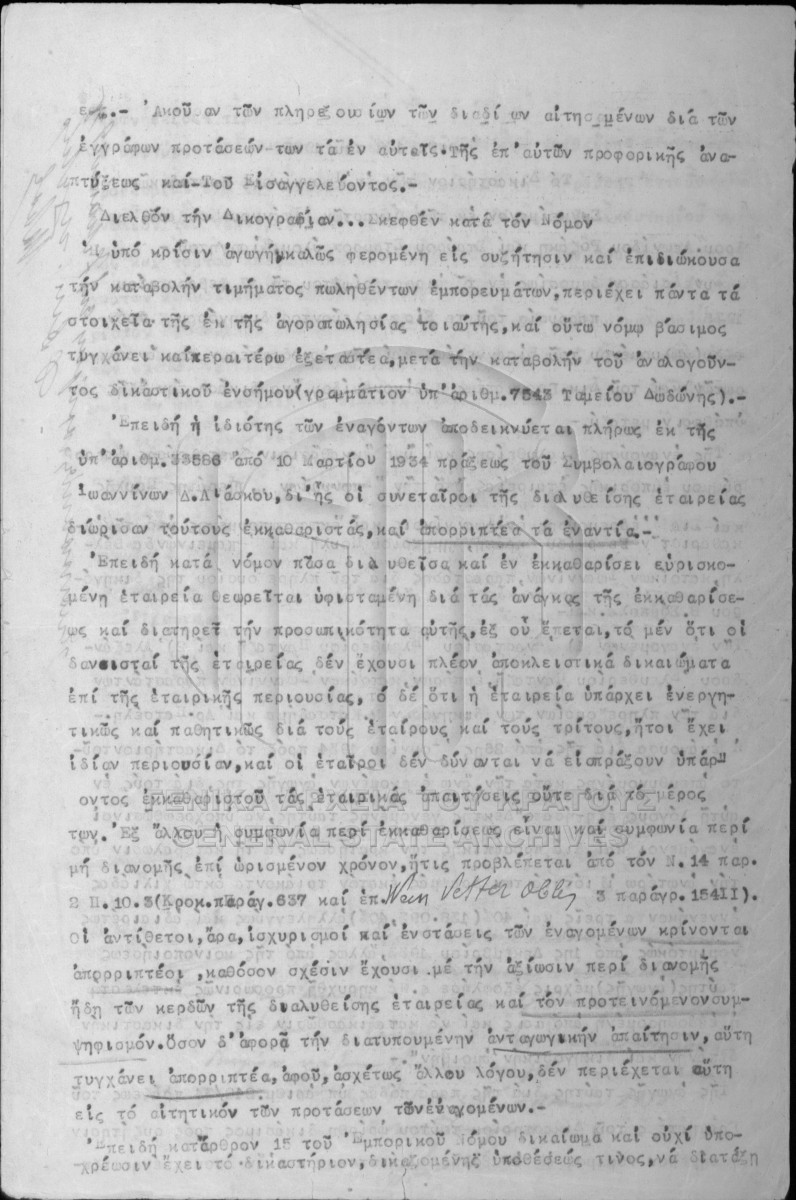 Ἀκοῦσαν τῶν πληρεξουσίων τῶν διαδίκων αἰτησαμένων διά τῶν
ἐγγράφων προτάσεών των τά ἐν αὐταῖς.Τῆς ἐπ'αὐτῶν προφορικῆς ἀνα-
πτύξεως καί-Τοῦ Εἰσαγγελεύοντος.-
Διελθόν τήν Δικογραφίαν...Σκεφθέν κατά τόν Νόμον
Ἡ ὑπό κρίσιν ἀγωγή,καλῶς φερομένη εἰς συζήτησιν καί ἐπιδιώκουσα
τήν καταβολήν τιμήματος πωληθέντων ἐμπορευμάτων,περιέχει πάντα τά
στοιχεῖα τῆς ἐκ τῆς ἀγοραπωλησίας τοιαύτης,καί οὕτω νόμῳ βάσιμος
τυγχάνει καίπεραιτέρω ἐξεταστέα,μετά τήν καταβολήν τοῦ ἀναλογοῦν-
τος δικαστικοῦ ἐνσήμου(γραμμάτιον ὑπ'ἀριθμ.7543 Ταμείου Δωδώνης).-
Ἐπειδή ἡ ἰδιότης τῶν ἐναγόντων ἀποδεικνύεται πλήρως ἐκ τῆς
ὑπ'ἀριθμ.33586 ἀπό 10 Μαρτίου 1934 πράξεως τοῦ Συμβολαιογράφου
Ἰωαννίνων Δ.Λιάσκου,δι'ἧς οἱ συνεταῖροι τῆς διαλυθείσης ἑταιρείας
διώρισαν τούτους ἐκκαθαριστάς,καί ἀπορριπτέα τά ἐναντία.-
Ἐπειδή κατά νόμον πᾶσα διαλυθεῖσα καί ἐν ἐκκαθαρίσει εὑρισκο-
μένη ἑταιρεία θεωρεῖται ὑφισταμένη διά τάς ἀνάγκας τῆς ἐκκαθαρίσε-
ως καί διατηρεῖ τήν προσωπικότητα αὐτῆς,ἐξ οὗ ἕπεται,τό μέν ὅτι οἱ
δανεισταί τῆς ἑταιρείας δέν ἔχουσι πλέον ἀποκλειστικά δικαιώματα
ἐπί τῆς ἑταιρικῆς περιουσίας, ὁ δέ ὅτι ἡ ἑταιρεία ὑπάρχει ἐνεργη-
τικῶς καί παθητικῶς διά τούς ἑταίρους καί τούς τρίτους,ἤτοι ἔχει
ἰδίαν περιουσίαν,καί οἱ ἑταῖροι δέν δύνανται νά εἰσπράξουν ὑπάρ-
οντος ἐκκαθαριστοῦ τάς ἑταιρικάς ἀπαιτήσεις οὔτε διά τό μέρος
των.Ἐξ ἄλλου ἡ συμφωνία περί ἐκκαθαρίσεως εἶναι καί συμφωνία περί
μή διανομῆς ἐπί ὡρισμένον χρόνον,ἥτις προβλέπεται ἀπό τόν Ν.14 παρ.
2 Π.10.3(Κροκ.παράγ.637 καί ἐπ. 3 παράγρ.154ΙΙ).
οἱ ἀντίθετοι,ἄρα,ἰσχυρισμοί καί ἐνστάσεις τῶν ἐναγομένων κρίνονται
ἀπορριπτέοι ,καθόσον σχέσιν ἔχουσι με τήν ἀξίωσιν περί διανομῆς
ἤδη τῶν κερδῶν τῆς διαλυθείσης ἑταιρείας καί τόν προτεινόμενονσυμ-
ψηφισμόν.Ὅσον δ'ἀφορᾷ τήν διατυπουμένην ἀνταγωγικήν ἀπαίτησιν,αὕτη
τυγχάνει ἀπορριπτέα,ἀφοῦ,ἀσχέτως ἄλλου λόγου,δέν περιέχεται αὕτη
εἰς τό αἰτητικόν τῶν προτάσεων τῶνἐναγομένων.-
Ἐπειδή κατἄρθρον 15 τοῦ Ἐμπορικοῦ Νόμου δικαίωμα καί οὐχί ὑπο-
χρέωσιν ἔχει τό δικαστήριον,δικαζομένης ὑποθέσεώς τινος,νά διατάξῃ
ΓΕΝΙΚΑ ΑΡΧΕΙΑ ΤΟΥ ΚΡΑΤΟΥΣ
GENERAL STATE ARCHIVES